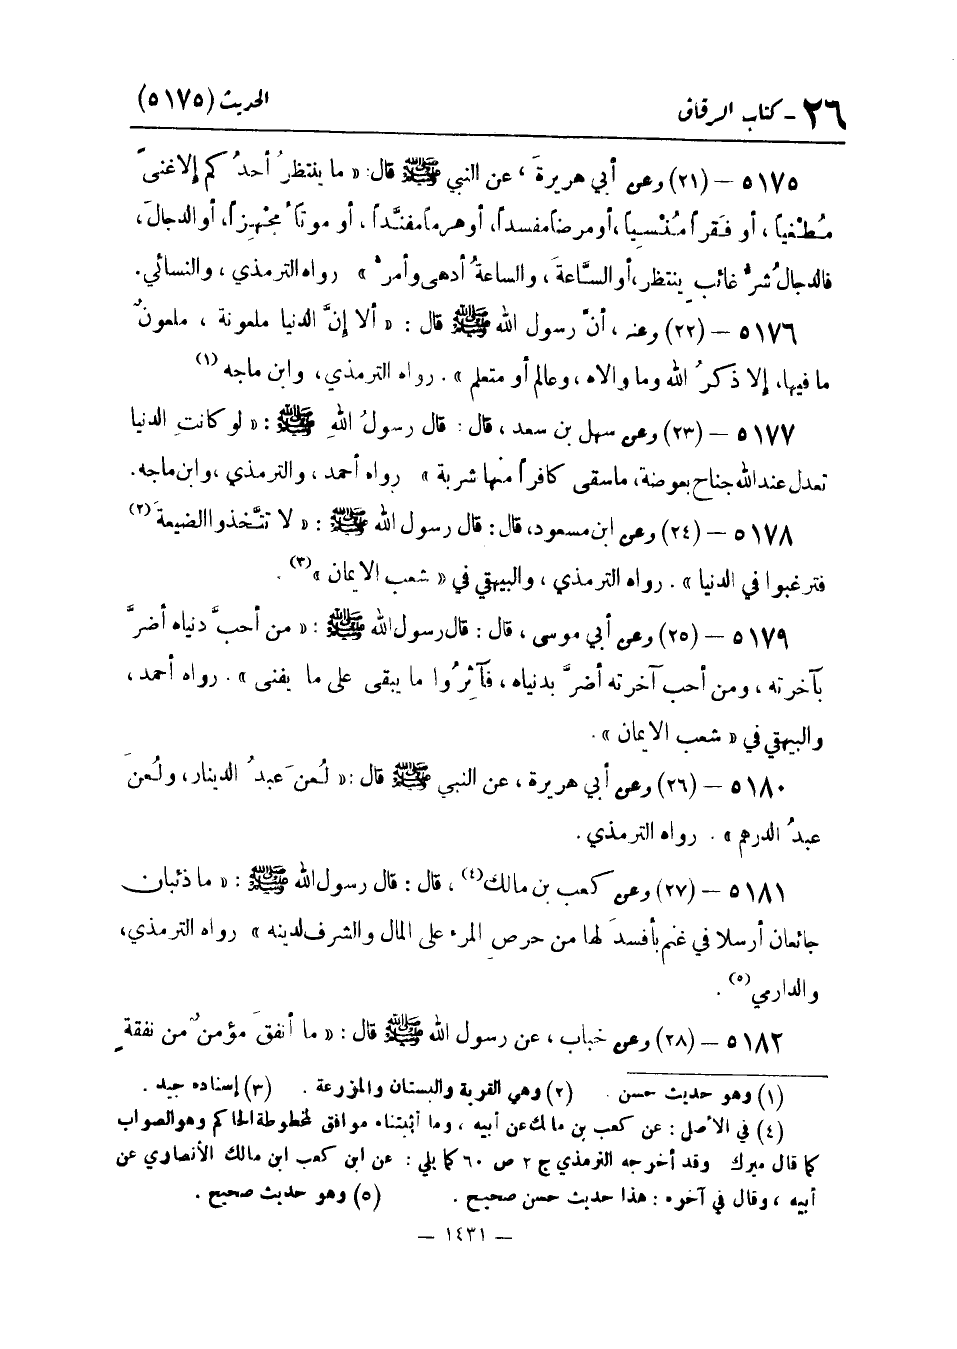 ٢٦ - كتاب الرقاق
الحديث (٥١٧٥)
٥١٧٥ - (٢١) وعن أبي هريرةَ ، عن النبي ﷺ قال: « ما ينتظرُ أحدُكم إلا غنىً
مُطْغياً ، أو فَقراً مُنْسِياً ، أو مرضاً مفسداً، أو هرماً مفنَّداً ، أو موتاً مجْهِزاً، أو الدجال،
فالدجالُ شرُّ غائبٍ ينتظر، أو السَّاعةَ ، والساعةُ أدهى وأمرُّ » رواه الترمذي ، والنسائي.
٥١٧٦ - (٢٢) وعنه ، أنَّ رسول الله ﷺ قال : « ألا إنَّ الدنيا ملعونة ، ملعونٌ
ما فيها، إلا ذكرُ الله وما والاه ، وعالم أو متعلم » . رواه الترمذي، وابن ماجه (١)
٥١٧٧ - (٢٣) وعن سهل بن سعد ، قال : قال رسولُ اللهِ ﷺ : « لو كانتِ الدنيا
تعدل عند الله جناح بعوضة، ما سقى كافراً منها شربة » رواه أحمد ، والترمذي ، وابن ماجه.
٥١٧٨ - (٢٤) وعن ابن مسعود، قال : قال رسول الله ﷺ : « لا تتَّخذوا الضيعةَ (٢)
فترغبوا في الدنيا » . رواه الترمذي ، والبيهقي في « شعب الايمان » (٣) .
٥١٧٩ - (٢٥) وعن أبي موسى ، قال : قال رسول الله ﷺ : « من أحبَّ دنياه أضرَّ
بآخرته ، ومن أحب آخرته أضرَّ بدنياه ، فآثِرُوا ما يبقى على ما يفنى » . رواه أحمد ،
والبيهقي في « شعب الايمان » .
٥١٨٠ - (٢٦) وعن أبي هريرة ، عن النبي ﷺ قال : « لُعنَ عبدُ الدينار، ولُعنَ
عبدُ الدرهم » . رواه الترمذي .
٥١٨١ - (٢٧) وعن كعب بن مالك (٤) ، قال : قال رسول الله ﷺ : « ما ذئبان
جائعان أرسلا في غنم بأفسدَ لها من حرصِ المرء على المال والشرف لدينه » رواه الترمذي،
والدارمي (٥) .
٥١٨٢ - (٢٨) وعن خباب ، عن رسول الله ﷺ قال : « ما أنفقَ مؤمنٌ من نفقةٍ
(١) وهو حديث حسن . (٢) وهي القرية والبستان والمزرعة . (٣) إسناده جيد .
(٤) في الأصل : عن كعب بن مالك عن أبيه ، وما أثبتناه موافق لمخطوطة الحاكم وهو الصواب
كما قال ميرك وقد أخرجه الترمذي ج ٢ ص ٦٠ كما يلي : عن ابن كعب ابن مالك الأنصاري عن
أبيه ، وقال في آخره : هذا حديث حسن صحيح . (٥) وهو حديث صحيح .
- ١٤٣١ -